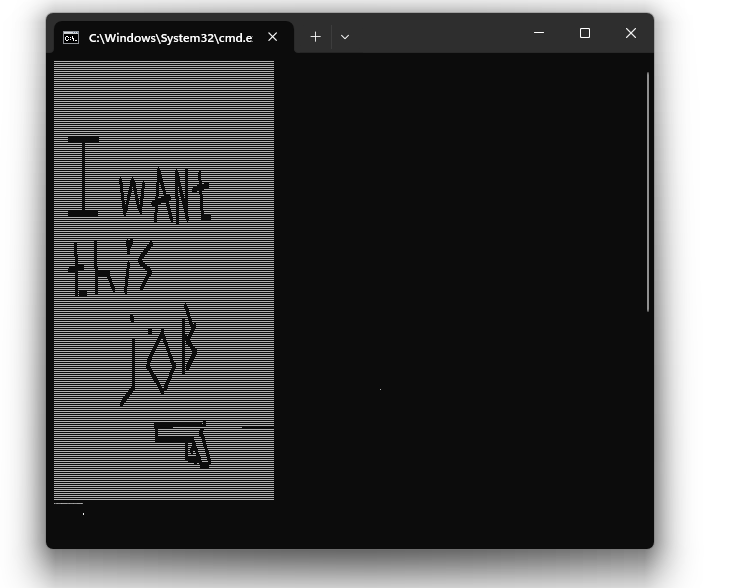 C:\Windows\System32\cmd.e
I wANt
this
joB